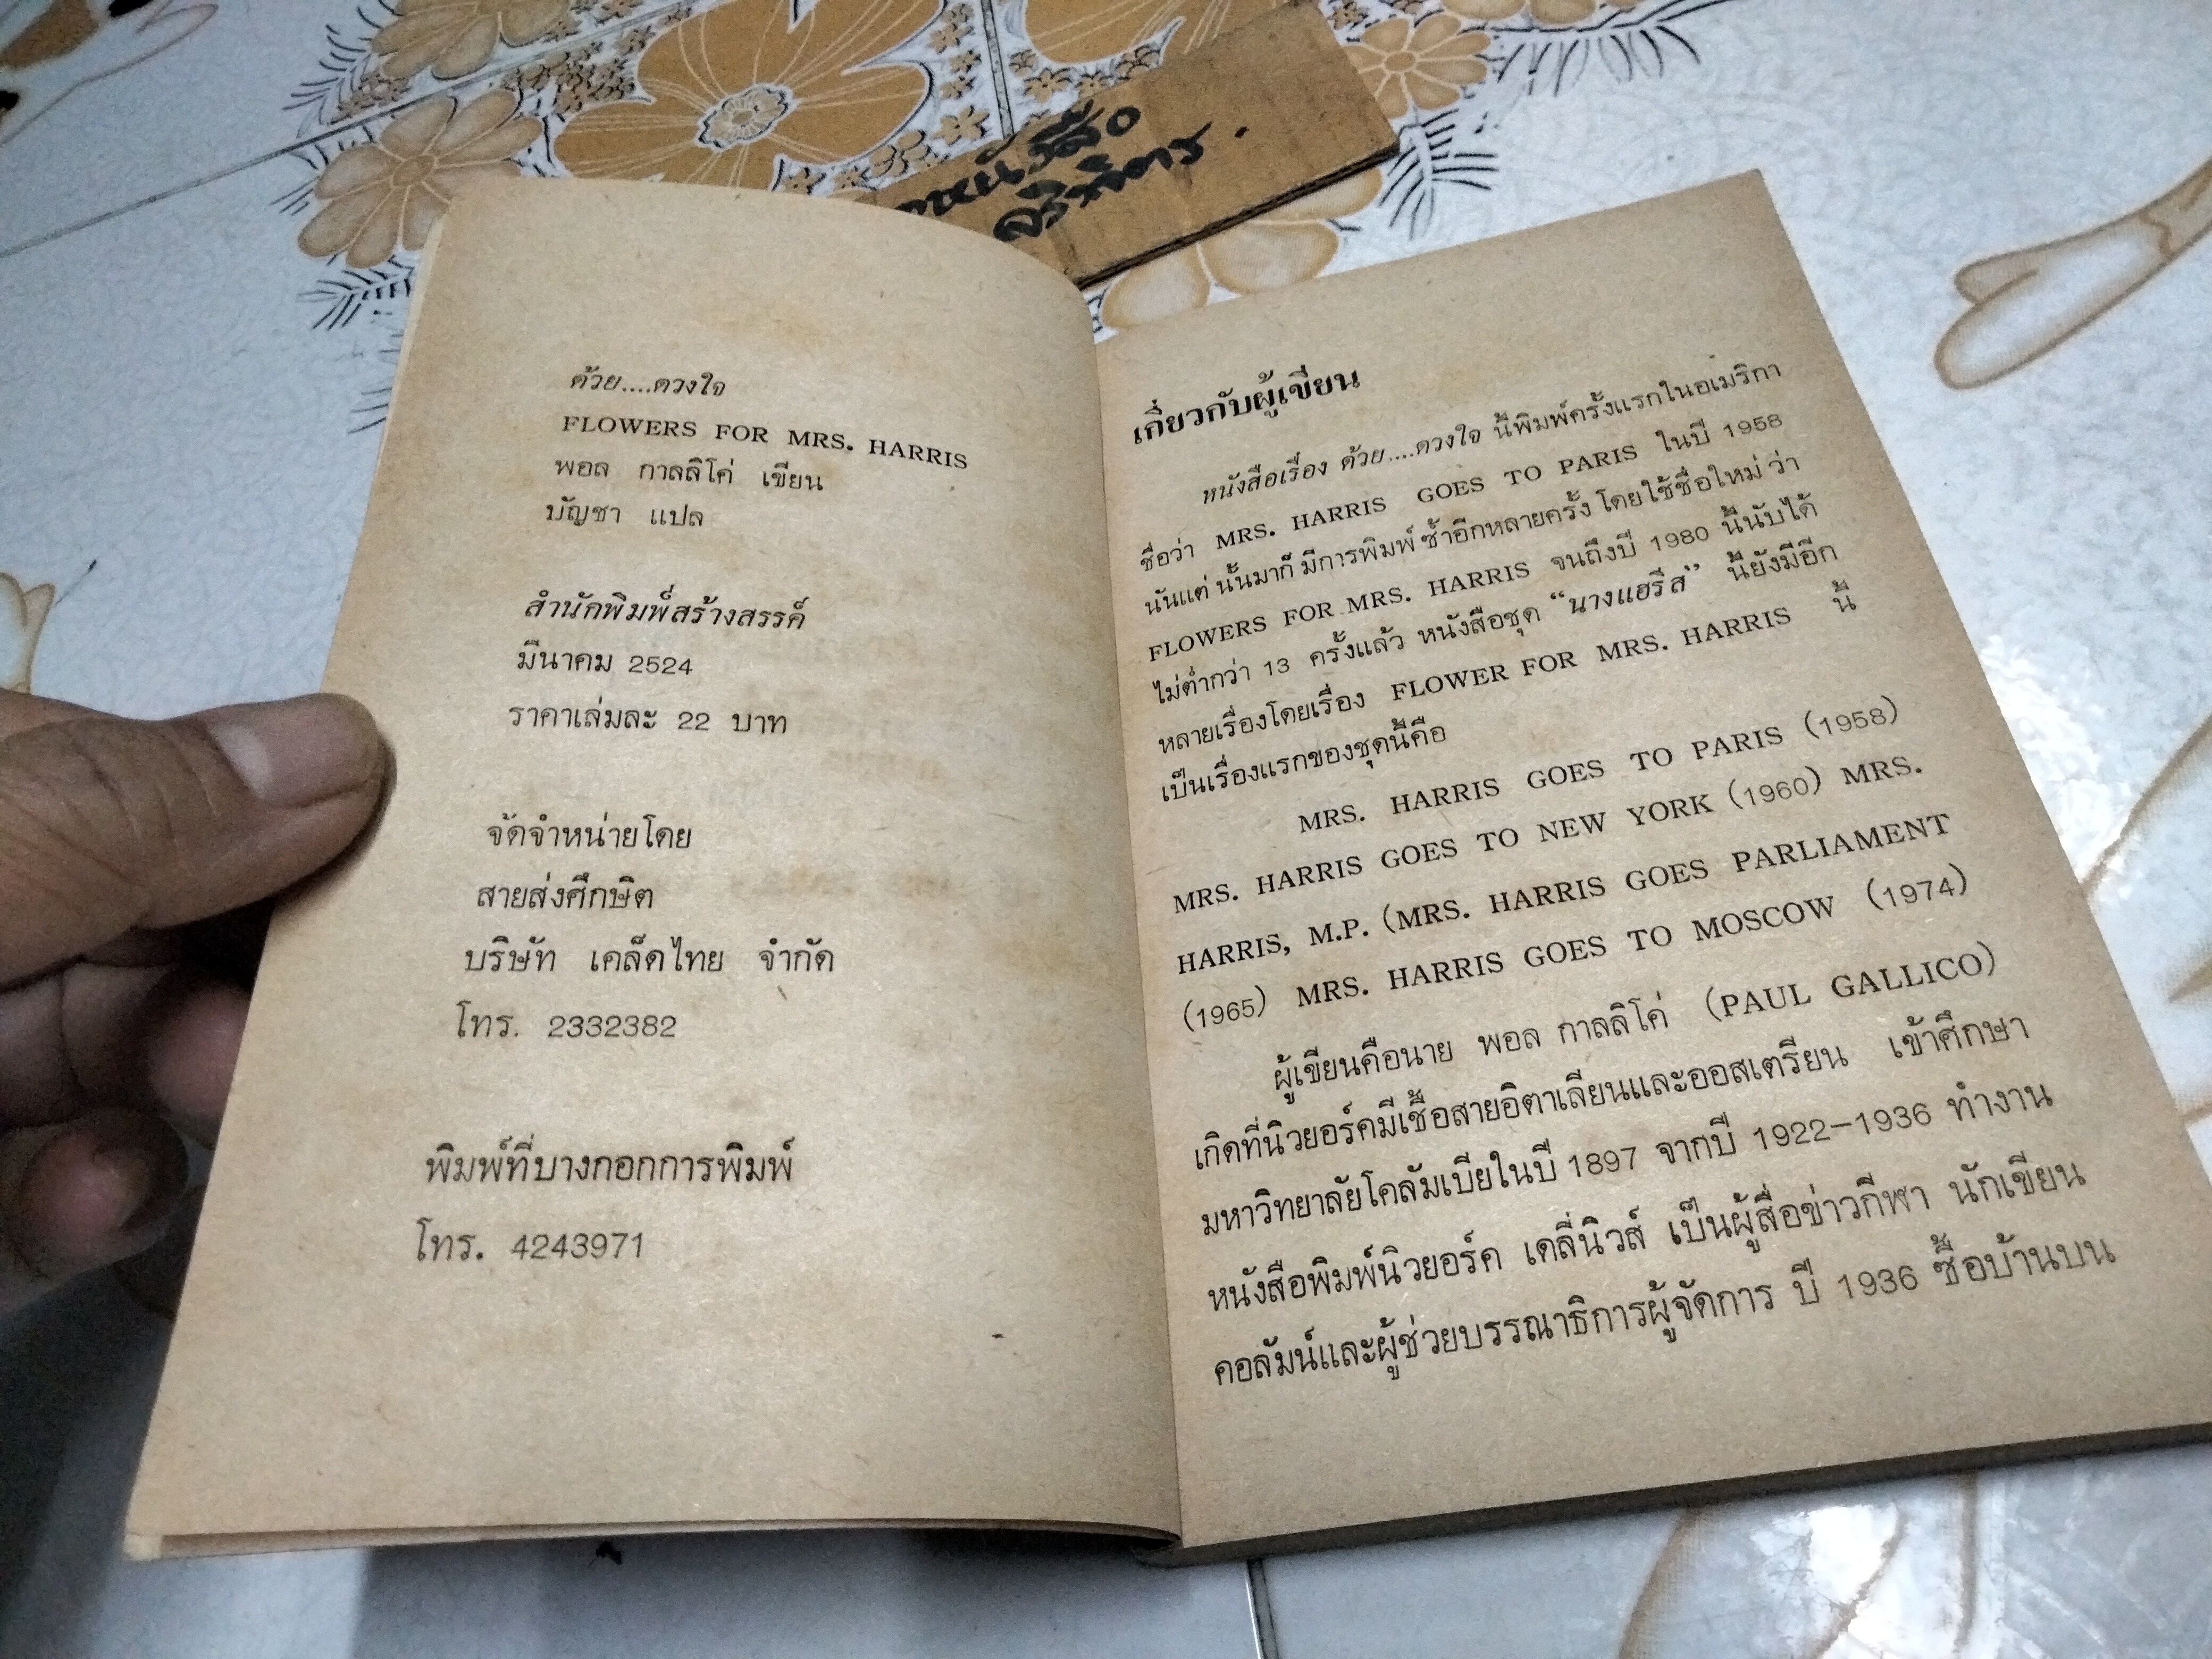 ด้วย....ดวงใจ
FLOWERS FOR MRS. HARRIS
พอล กาลลิโค่ เขียน
บัญชา แปล
สำนักพิมพ์สร้างสรรค์
มีนาคม 2524
ราคาเล่มละ 22 บาท
จัดจำหน่ายโดย
สายส่งศึกษิต
บริษัท เคล็ดไทย จำกัด
โทร. 2332382
พิมพ์ที่บางกอกการพิมพ์
โทร. 4243971
เกี่ยวกับผู้เขียน
หนังสือเรื่อง ด้วย....ดวงใจ นี้พิมพ์ครั้งแรกในอเมริกา
ชื่อว่า MRS. HARRIS GOES TO PARIS ในปี 1958
นับแต่นั้นมาก็มีการพิมพ์ซ้ำอีกหลายครั้ง โดยใช้ชื่อใหม่ ว่า
FLOWERS FOR MRS. HARRIS จนถึงปี 1980 นี้นับได้
ไม่ต่ำกว่า 13 ครั้งแล้ว หนังสือชุด “นางแฮรีส” นี้ยังมีอีก
หลายเรื่องโดยเรื่อง FLOWER FOR MRS. HARRIS นี้
เป็นเรื่องแรกของชุดนี้คือ
MRS. HARRIS GOES TO PARIS (1958)
MRS. HARRIS GOES TO NEW YORK (1960) MRS.
HARRIS, M.P. (MRS. HARRIS GOES PARLIAMENT
(1965) MRS. HARRIS GOES TO MOSCOW (1974)
ผู้เขียนคือนาย พอล กาลลิโค่ (PAUL GALLICO)
เกิดที่นิวยอร์คมีเชื้อสายอิตาเลียนและออสเตรียน เข้าศึกษา
มหาวิทยาลัยโคลัมเบียในปี 1897 จากปี 1922–1936 ทำงาน
หนังสือพิมพ์นิวยอร์ค เดลี่นิวส์ เป็นผู้สื่อข่าวกีฬา นักเขียน
คอลัมน์และผู้ช่วยบรรณาธิการผู้จัดการ ปี 1936 ซื้อบ้านบน